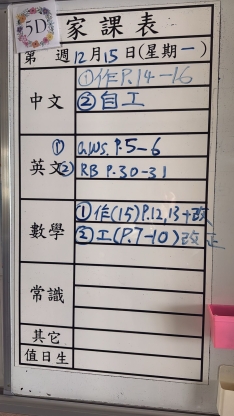 5D
家課表
第 週 12月15日(星期一)
中文 ①作P.14-16
②自工
英文 ① GWS. P.5-6
② RB P.30-31
數學 ①作(15)P.12,13+改
②工(P.7-10)改正
常識
其它
值日生